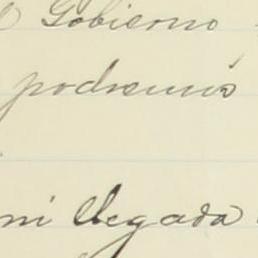 Gobierno
podremos
mi llegada